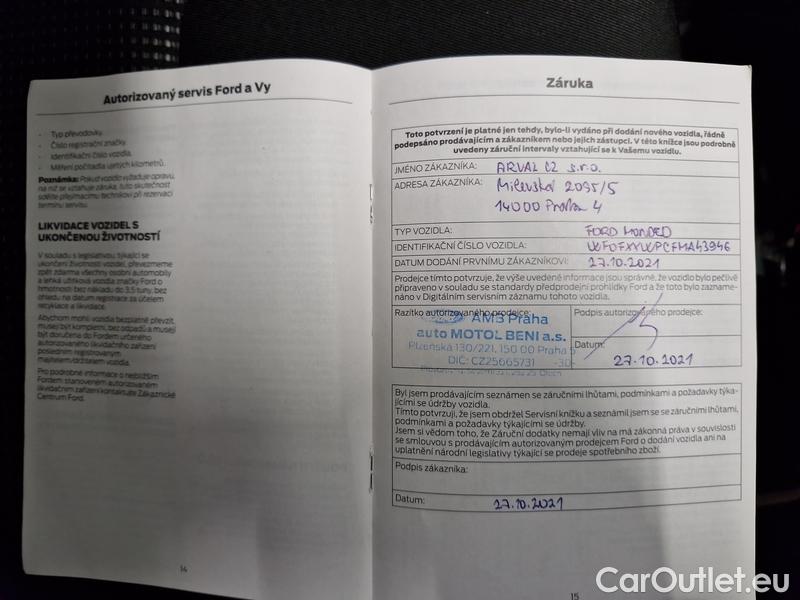 Autorizovaný servis Ford a Vy
- Typ převodovky.
- Číslo registrační značky.
- Identifikační číslo vozidla.
- Měření počítadla ujetých kilometrů.
Poznámka: Pokud vozidlo vyžaduje opravu,
na niž se vztahuje záruka, tuto skutečnost
sdělte přejímacímu technikovi při rezervaci
termínu servisu.
LIKVIDACE VOZIDEL S
UKONČENOU ŽIVOTNOSTÍ
V souladu s legislativou, týkající se
ukončení životnosti vozidel, převezmeme
zpět zdarma všechny osobní automobily
a lehká užitková vozidla značky Ford o
hmotnosti bez nákladu do 3,5 tuny, bez
ohledu na datum registrace za účelem
recyklace a likvidace.
Abychom mohli vozidla bezplatně převzít,
musejí být kompletní, bez odpadů a musejí
být doručena do Fordem určeného
autorizovaného likvidačního zařízení
posledním registrovaným
majitelem/držitelem vozidla.
Pro podrobné informace o nejbližším
Fordem stanoveném autorizovaném
likvidačním zařízení kontaktujte Zákaznické
Centrum Ford.
14
Záruka
Toto potvrzení je platné jen tehdy, bylo-li vydáno při dodání nového vozidla, řádně
podepsáno prodávajícím a zákazníkem nebo jejich zástupci. V této knížce jsou podrobně
uvedeny záruční intervaly vztahující se k Vašemu vozidlu.
JMÉNO ZÁKAZNÍKA: ARVAL CZ s.r.o.
ADRESA ZÁKAZNÍKA: Milevská 2095/5
14000 Praha 4
TYP VOZIDLA: FORD MONDEO
IDENTIFIKAČNÍ ČÍSLO VOZIDLA: WF0FXXWPCFMA43946
DATUM DODÁNÍ PRVNÍMU ZÁKAZNÍKOVI: 27.10.2021
Prodejce tímto potvrzuje, že výše uvedené informace jsou správné, že vozidlo bylo pečlivě
připraveno v souladu se standardy předprodejní prohlídky Ford a že toto bylo zazname-
náno v Digitálním servisním záznamu tohoto vozidla.
Razítko autorizovaného prodejce: Podpis autorizovaného prodejce:
AMB Praha
auto MOTOL BENI a.s.
Plzeňská 130/221, 150 00 Praha 5
DIČ: CZ25665731 -30-
Datum:
27.10.2021
Byl jsem prodávajícím seznámen se záručními lhůtami, podmínkami a požadavky týka-
jícími se údržby vozidla.
Tímto potvrzuji, že jsem obdržel Servisní knížku a seznámil jsem se se záručními lhůtami,
podmínkami a požadavky týkajícími se údržby.
Jsem si vědom toho, že Záruční dodatky nemají vliv na má zákonná práva v souvislosti
se smlouvou s prodávajícím autorizovaným prodejcem Ford o dodání vozidla ani na
uplatnění národní legislativy týkající se prodeje spotřebního zboží.
Podpis zákazníka:
Datum: 27.10.2021
15
CarOutlet.eu